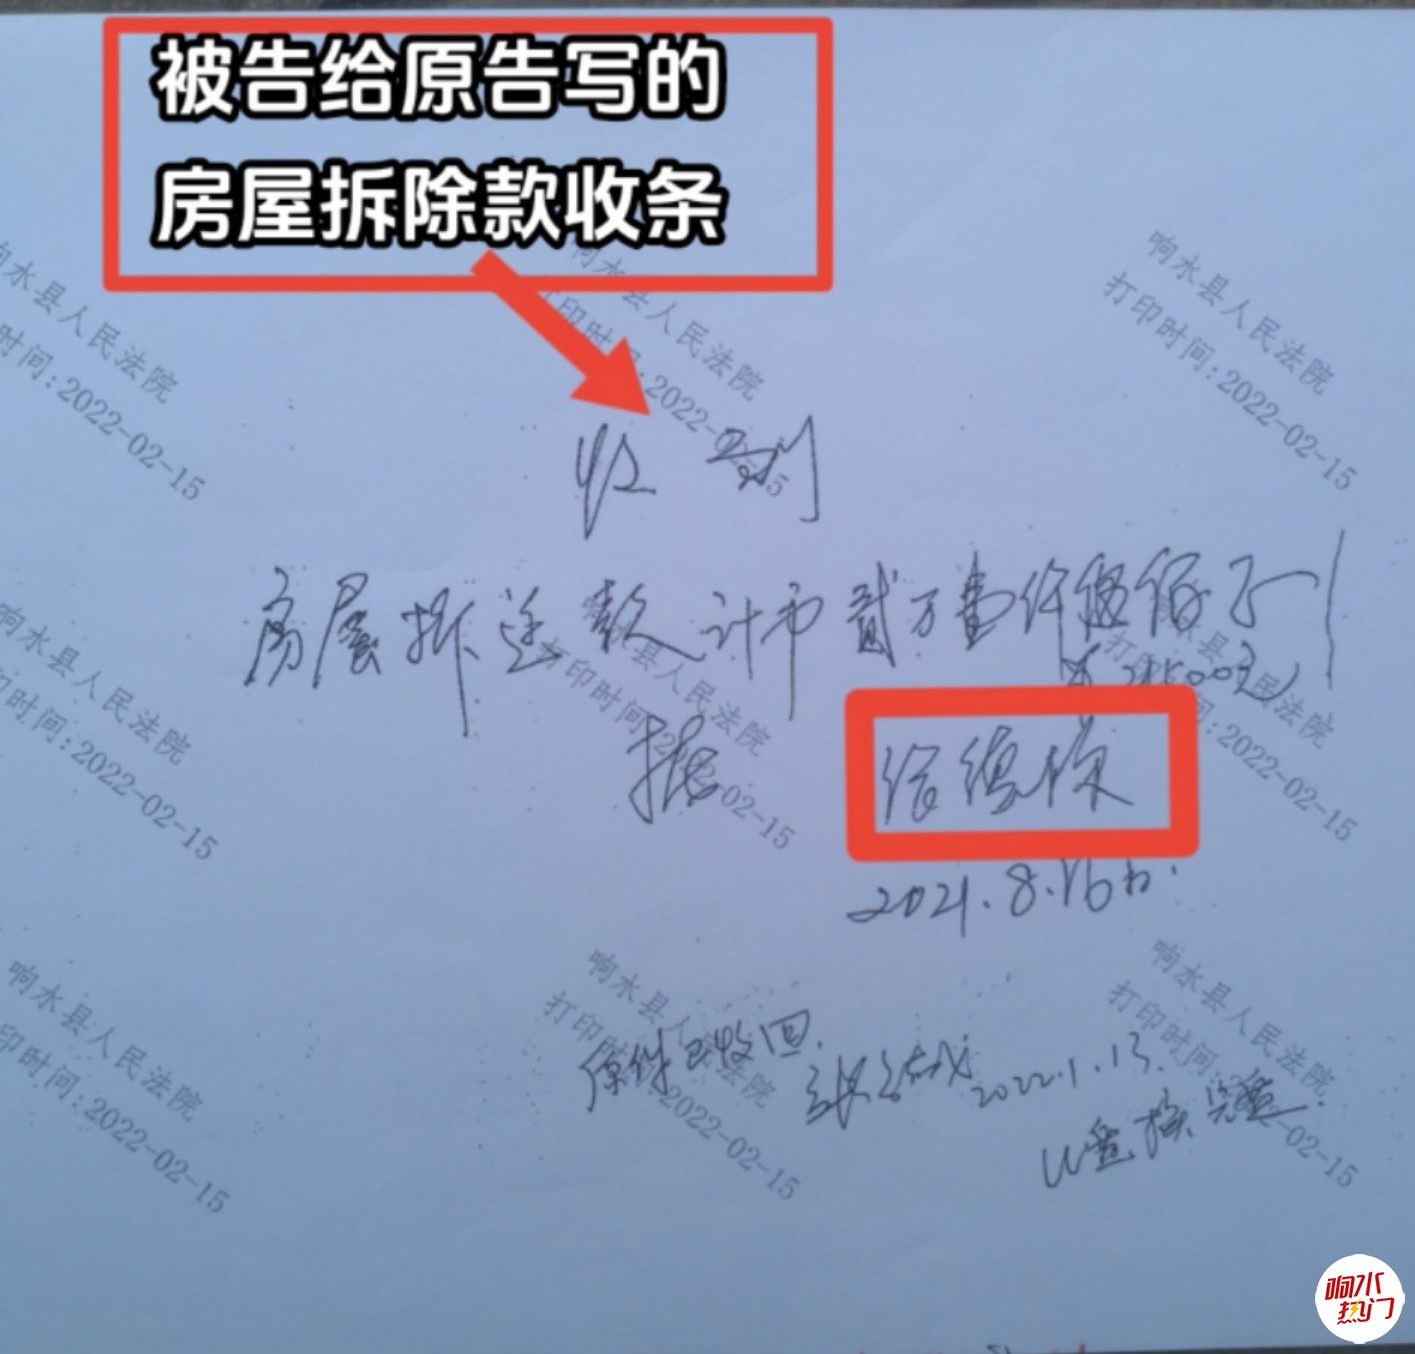 被告给原告写的
房屋拆除款收条
响水县人民法院
打印时间:2022-02-15
响水县人民法院
打印时间:2022-02-15
响水县人民法院
打印时间:2022-02-15
收到
房屋拆迁款计币贰万壹仟伍佰
21500元
响水县人民法院
打印时间:2022-02-15
响水县人民法院
打印时间:2022-02-15
响水县人民法院
打印时间:2022-02-15
据
2021.8.16日.
响水县人民法院
打印时间:2022-02-15
响水县人民法院
打印时间:2022-02-15
响水县人民法院
打印时间:2022-02-15
原件已收回.
2022.1.13.
响水
热门